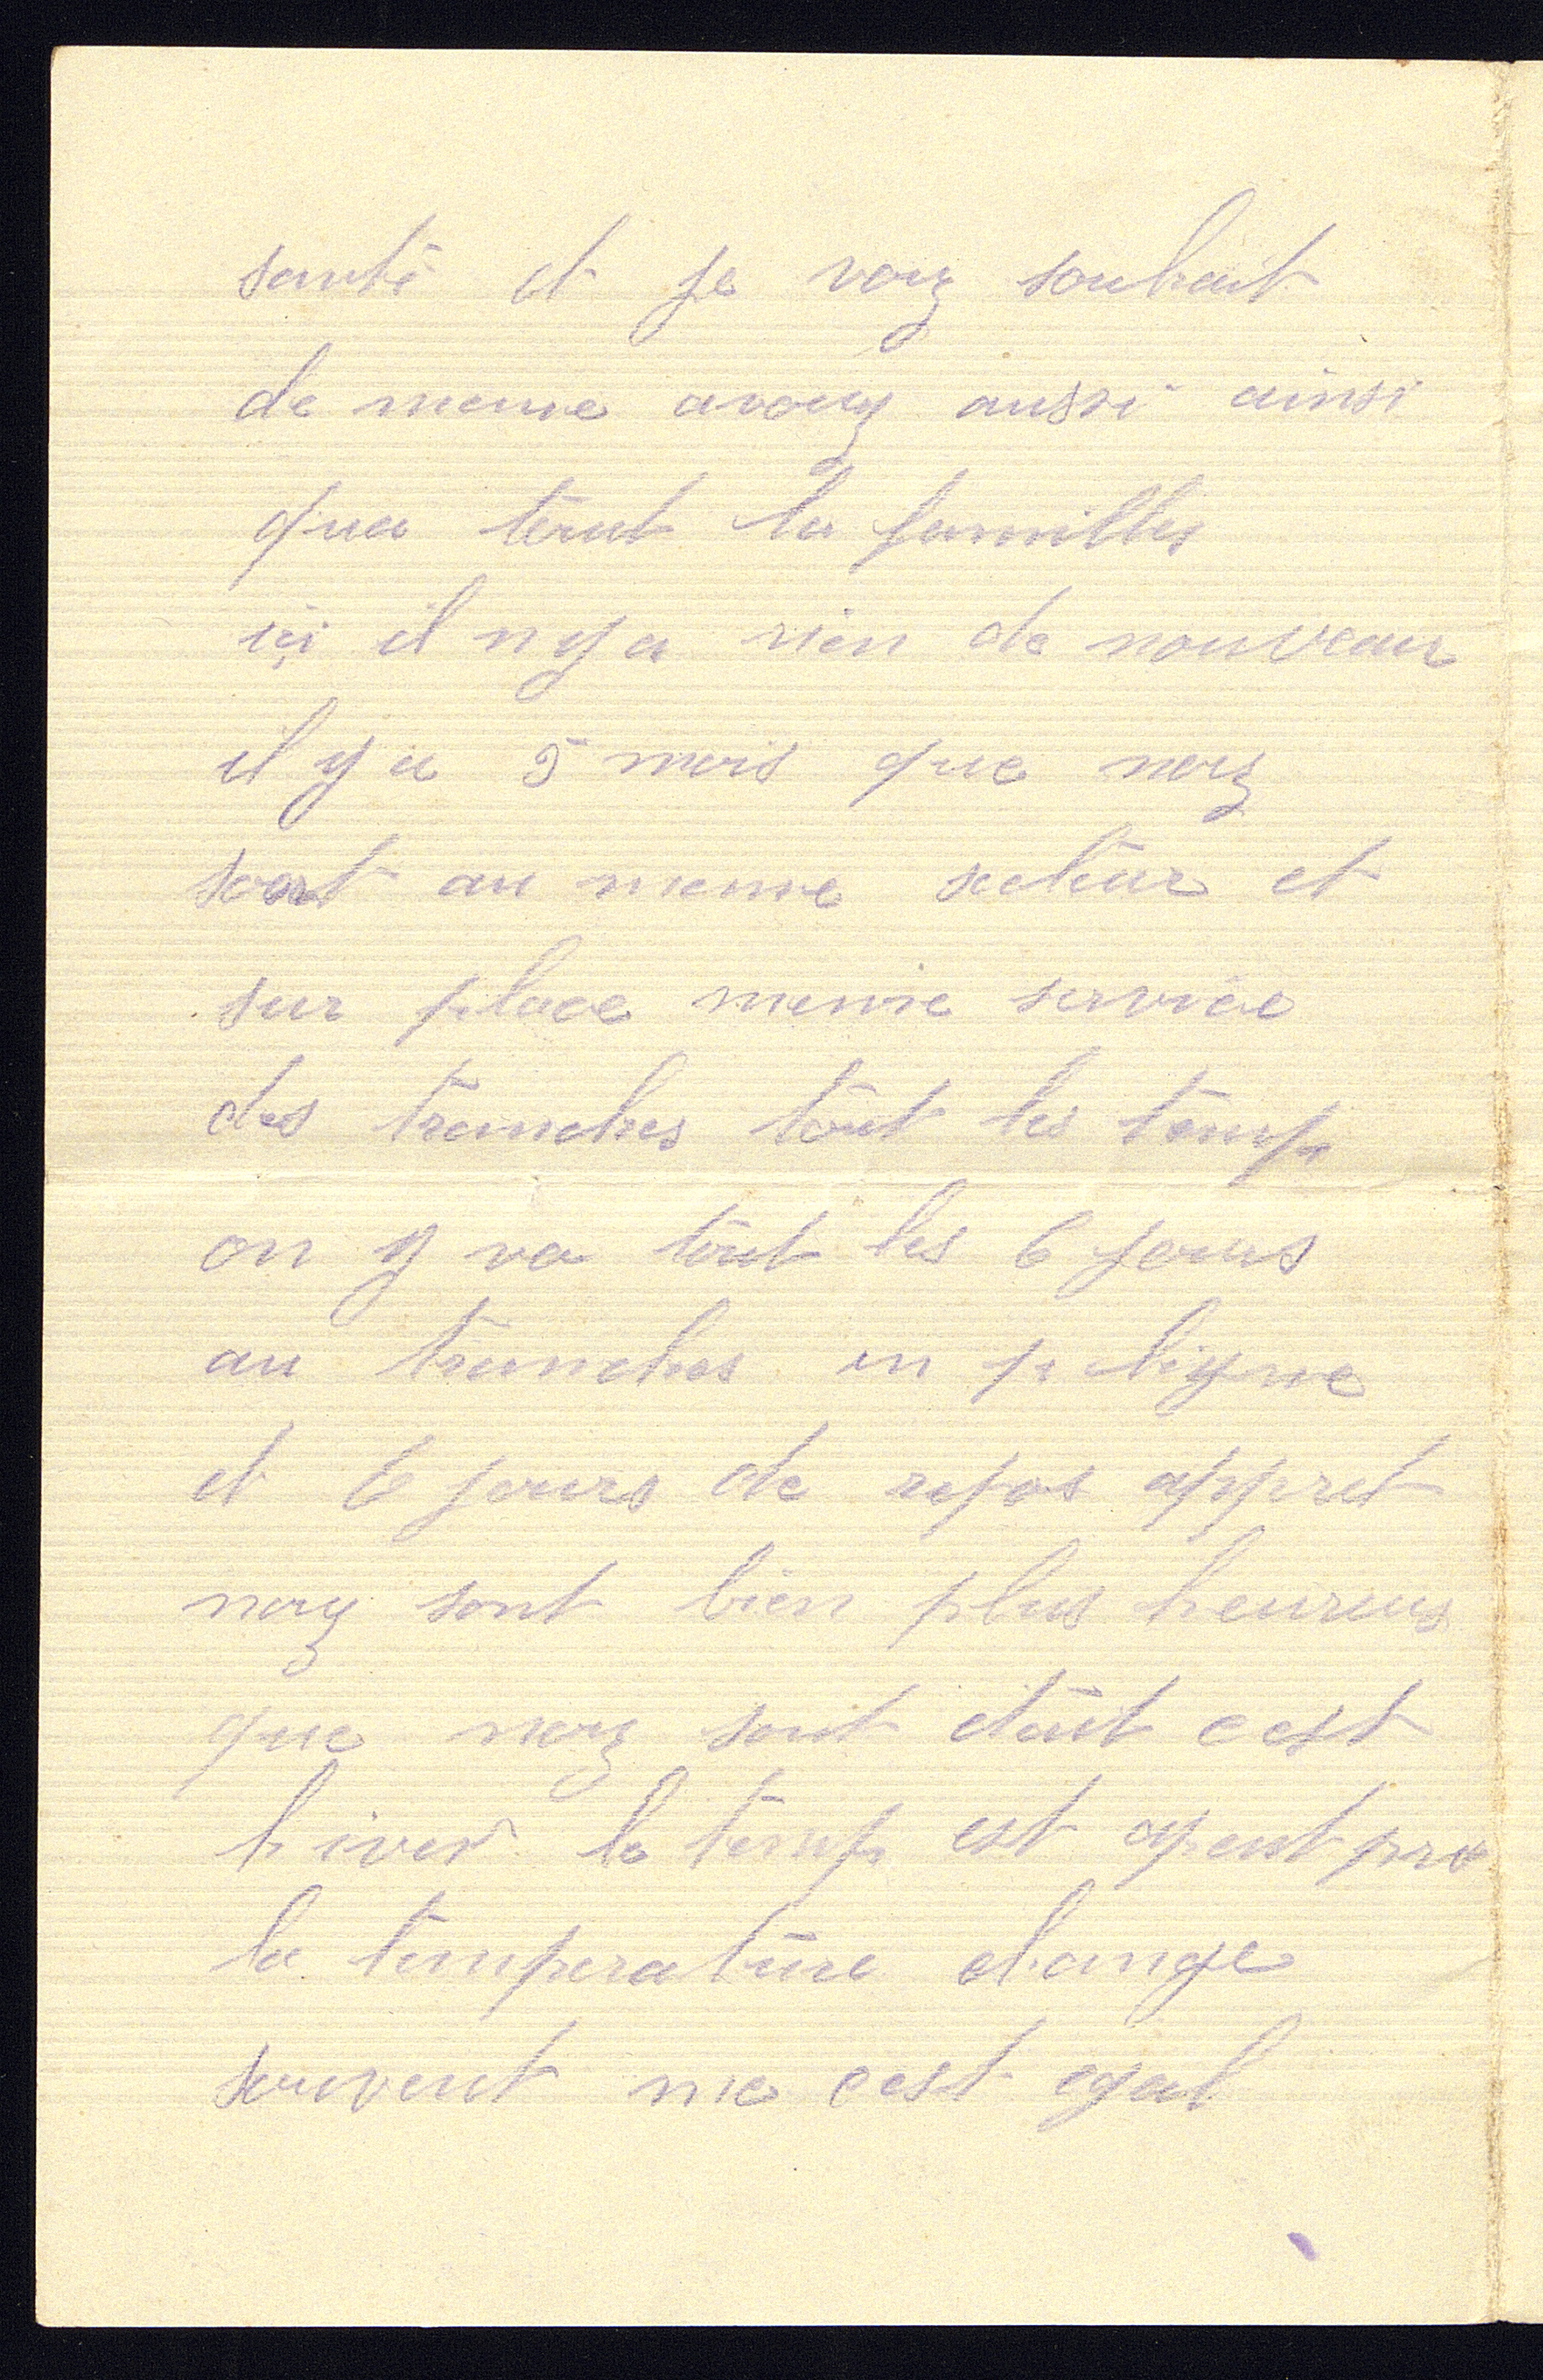 santé et je vouz souhait
de meme avouz aussi ainsi
que tout la familles
içi il n y a rien de nouveau
il y a 5 mois que nouz
sont au meme secteur et
sur place meme service
des tranches tout les temp
on y va tout les 6 jours
au tranches en p. ligne
et 6 jours de repos appret
nouz sont bien plus heureus
que nouz sont etait cest
hiver le temp est apeut pre
la temperature change
souvent me cest egal